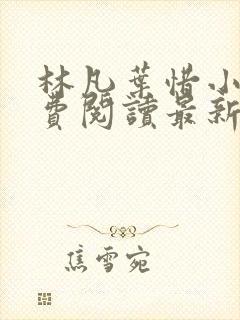 林凡葉惜小
費閱讀最新
焦雪宛